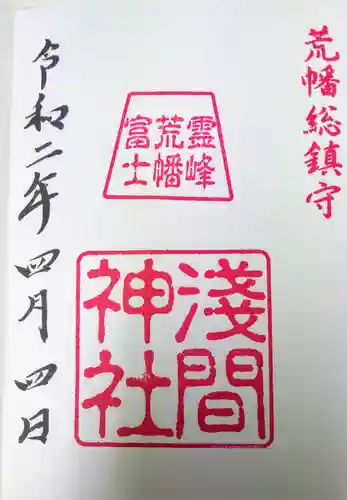 荒幡総鎮守
霊峰
荒幡
富士
淺間
神社
令和二年 四月 四日